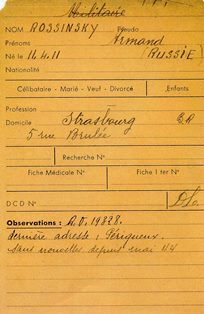 Militaire
NOM ROSSINSKY Pseudo
Prénoms Armand
Né le 14.4.11 (RUSSIE)
Nationalité
Célibataire - Marié - Veuf - Divorcé Enfants
Profession
Domicile Strasbourg
5 rue Brulée
Recherche N°
Fiche Médicale N° Fiche 1 ter N°
DCD N°
Observations : A.V. 19828.
dernière adresse : Périgueux.
sans nouvelles depuis mai 44